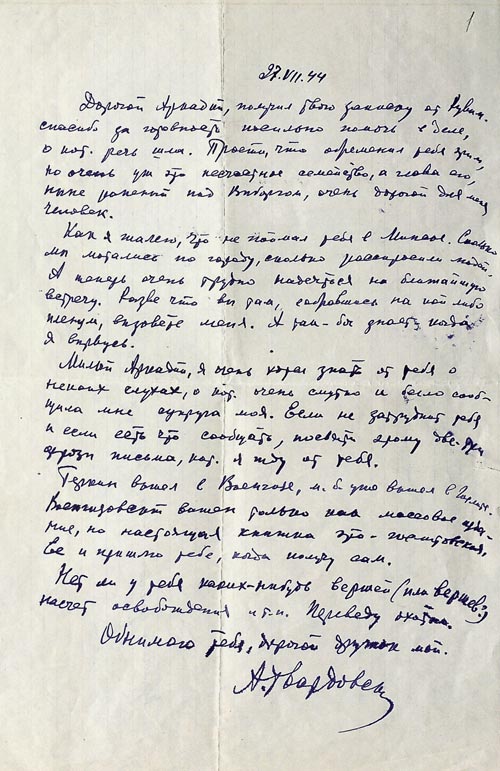 1
27.VII.44
Дорогой Аркадий, получил твою записку от
спасибо за готовность посильно помочь в деле,
о кот. речь шла. Прости, что обременил тебя этим,
но очень уж это несчастное семейство, а глава его,
ныне раненый под Выборгом, очень дорогой для меня
человек.
Как я жалею, что не поймал тебя в Минске. Сколько
мы мотались по городу, сколько расспросили людей.
А теперь очень трудно надеяться на ближайшую
встречу. Разве что вы там, собравшись на кой-либо
пленум, вызовете меня. А так-бы знает, когда
я вырвусь.
Милый Аркадий, я очень хотел знать от тебя о
неких слухах, о кот. очень смутно и бегло сооб-
щила мне супруга моя. Если не затруднит тебя
и если есть что сообщать, посвяти этому две-три
фразы письма, кот. я жду от тебя.
Теркин вышел в Воениздате, м.б. уже вышел в
Воениздатский важен только как массовое изда-
ние, но настоящая книжка это - гослитовская,
ее и пришлю тебе, когда получу сам.
Нет ли у тебя каких-нибудь вершей (или вершев?)
насчет освобождения и т.п. Переведу охотно.
Обнимаю тебя, дорогой дружок мой.
А. Твардовский